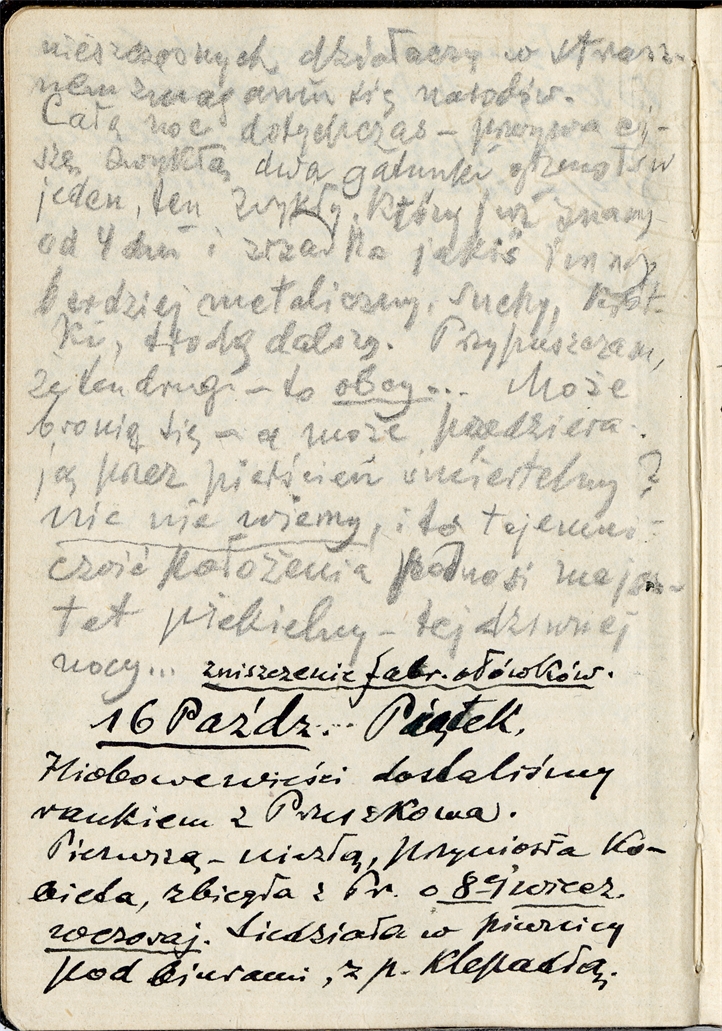 nieszczęsnych działaczy w strasz-
nem zmaganiu się narodów.
Całą noc dotychczas – przerywa ci-
szę zwykłą dwa gatunki grzmotów
jeden, ten zwykły, który już znamy
od 4 dni i zrzadka jakiś inny
bardziej metaliczny, suchy, krót-
ki, trochę dalszy. Przypuszczam,
że ten drugi – to obcy... Może
bronią się – a może przedziera-
ją przez pierścień śmiertelny?
Nic nie wiemy, i ta tajemni-
czość położenia podnosi maje-
tet piekielny – tej dziwnej
nocy... zniszczenie fabr. ołówków.
16 Paźdz... Piątek.
Hiobowe wieści dostaliśmy
rankiem z Pruszkowa.
Pierwszą – niezłą, przyniosła Ko-
bieta, zbiegła z Pr. o 8-9 wiecz.
wczoraj. Siedziała w piwnicy
pod biurami, z p. Klepadłą.